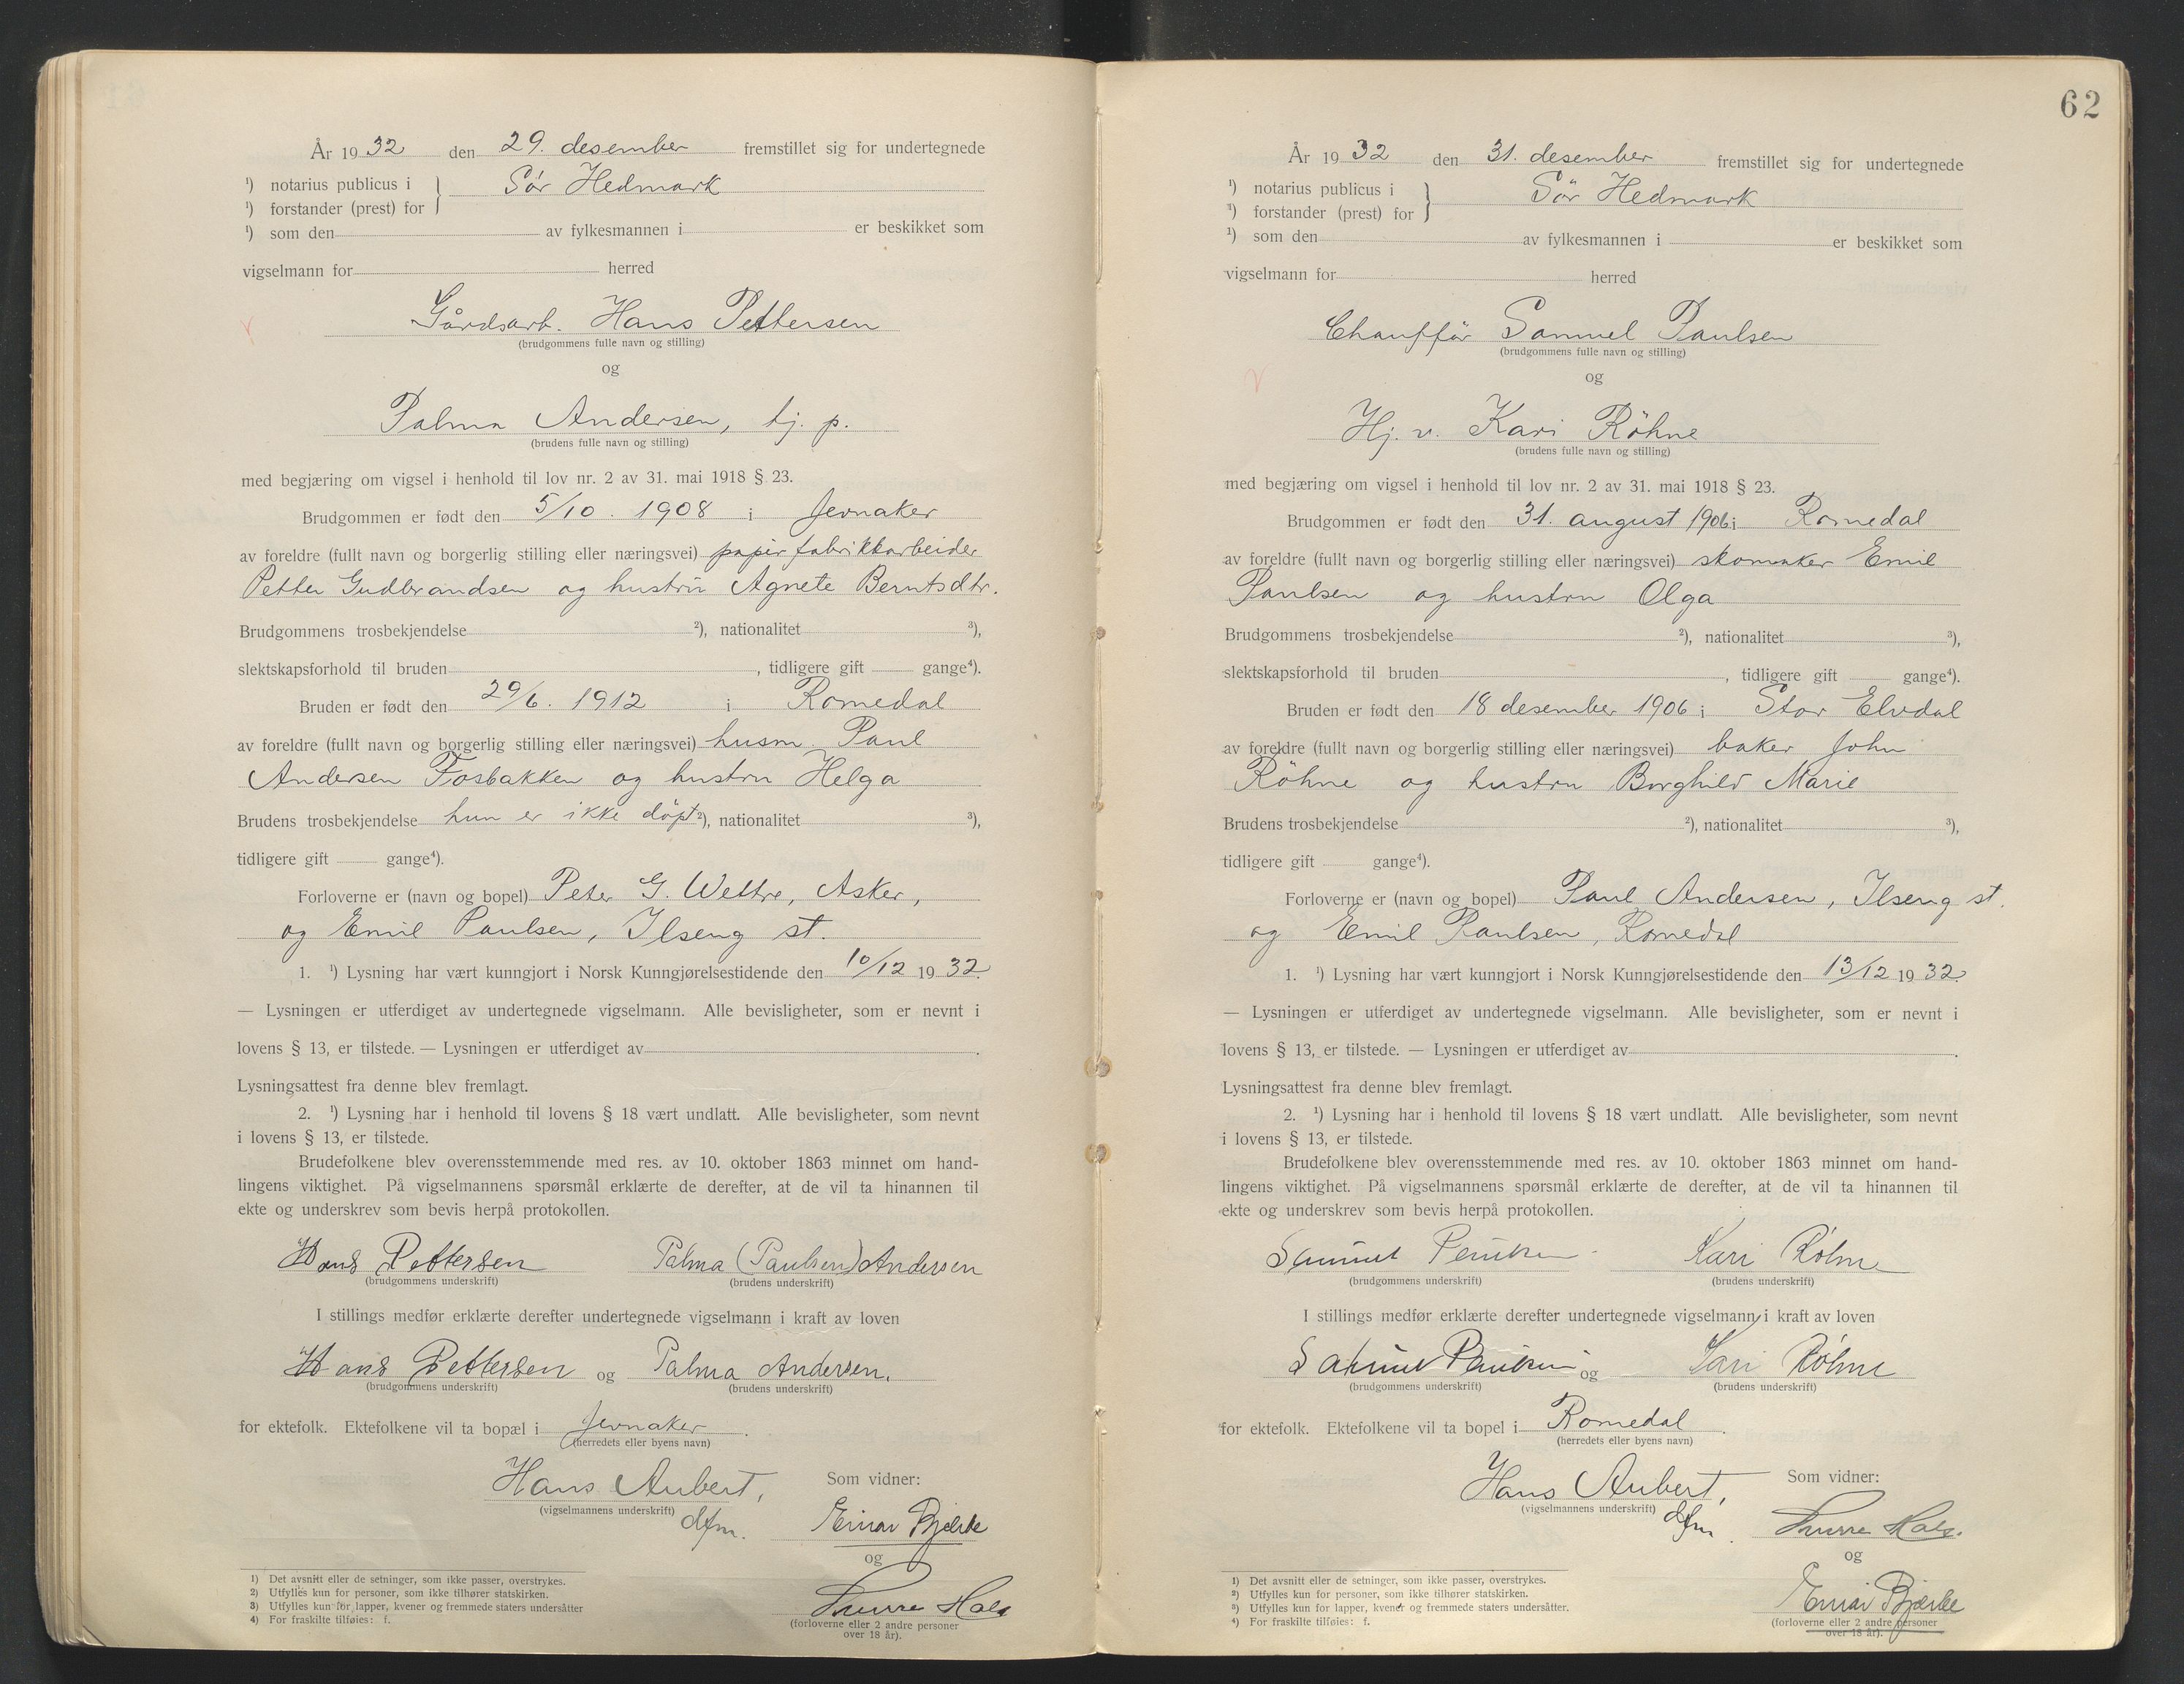 År 1932 den 29. desember fremstillet sig for undertegnede
¹) notarius publicus i } Sör Hedmark
¹) forstander (prest) for
¹) som den av fylkesmannen i er beskikket som
vigselmann for herred
Gårdsarb. Hans Pettersen
(brudgommens fulle navn og stilling)
og
Palma Andersen, hj. p.
(brudens fulle navn og stilling)
med begjæring om vigsel i henhold til lov nr. 2 av 31. mai 1918 § 23.
Brudgommen er født den 5/10. 1908 i Jevnaker
av foreldre (fullt navn og borgerlig stilling eller næringsvei) papirfabrikkarbeider
Petter Gudbrandsen og hustru Agnete Berntsdtr.
Brudgommens trosbekjendelse ²), nationalitet ³),
slektskapsforhold til bruden , tidligere gift gange⁴).
Bruden er født den 29/6. 1912 i Romedal
av foreldre (fullt navn og borgerlig stilling eller næringsvei) husm. Paul
Andersen Fosbakken og hustru Helga
Brudens trosbekjendelse hun er ikke döpt ²), nationalitet ³),
tidligere gift gange⁴).
Forloverne er (navn og bopel) Peter G. Wettre, Asker,
og Emil Paulsen, Ilseng st.
1. ¹) Lysning har vært kunngjort i Norsk Kunngjørelsestidende den 10/12 1932.
— Lysningen er utferdiget av undertegnede vigselmann. Alle bevisligheter, som er nevnt i
lovens § 13, er tilstede. — Lysningen er utferdiget av .
Lysningsattest fra denne blev fremlagt.
2. ¹) Lysning har i henhold til lovens § 18 vært undlatt. Alle bevisligheter, som nevnt
i lovens § 13, er tilstede.
Brudefolkene blev overensstemmende med res. av 10. oktober 1863 minnet om hand-
lingens viktighet. På vigselmannens spørsmål erklærte de derefter, at de vil ta hinannen til
ekte og underskrev som bevis herpå protokollen.
Hans Pettersen Palma (Paulsen) Andersen
(brudgommens underskrift) (brudens underskrift)
I stillings medfør erklærte derefter undertegnede vigselmann i kraft av loven
Hans Pettersen og Palma Andersen.
(brudgommens underskrift) (brudens underskrift)
for ektefolk. Ektefolkene vil ta bopæl i Jevnaker .
(herredets eller byens navn)
Hans Aubert, Som vidner:
(vigselmannens underskrift) dfm. Einar Bjerke
og
Hals
(forloverne eller 2 andre personer
over 18 år).
1) Det avsnitt eller de setninger, som ikke passer, overstrykes.
2) Utfylles kun for personer, som ikke tilhører statskirken.
3) Utfylles kun for lapper, kvener og fremmede staters undersåtter
4) For fraskilte tilføies: f.
62
År 1932 den 31. desember fremstillet sig for undertegnede
¹) notarius publicus i } Sör Hedmark
¹) forstander (prest) for
¹) som den av fylkesmannen i er beskikket som
vigselmann for herred
Chaufför Samuel Paulsen
(brudgommens fulle navn og stilling)
og
Hj. v. Kari Röhne
(brudens fulle navn og stilling)
med begjæring om vigsel i henhold til lov nr. 2 av 31. mai 1918 § 23.
Brudgommen er født den 31. august 1906 i Romedal
av foreldre (fullt navn og borgerlig stilling eller næringsvei) skomaker Emil
Paulsen og hustru Olga
Brudgommens trosbekjendelse ²), nationalitet ³),
slektskapsforhold til bruden , tidligere gift gange⁴).
Bruden er født den 18 desember 1906 i Stor Elvdal
av foreldre (fullt navn og borgerlig stilling eller næringsvei) baker John
Röhne og hustru Borghild Marie
Brudens trosbekjendelse ²), nationalitet ³),
tidligere gift gange⁴).
Forloverne er (navn og bopel) Paul Andersen, Ilseng st.
og Emil Paulsen, Romedal
1. ¹) Lysning har vært kunngjort i Norsk Kunngjørelsestidende den 13/12 1932.
— Lysningen er utferdiget av undertegnede vigselmann. Alle bevisligheter, som er nevnt i
lovens § 13, er tilstede. — Lysningen er utferdiget av .
Lysningsattest fra denne blev fremlagt.
2. ¹) Lysning har i henhold til lovens § 18 vært undlatt. Alle bevisligheter, som nevnt
i lovens § 13, er tilstede.
Brudefolkene blev overensstemmende med res. av 10. oktober 1863 minnet om hand-
lingens viktighet. På vigselmannens spørsmål erklærte de derefter, at de vil ta hinannen til
ekte og underskrev som bevis herpå protokollen.
Samuel Paulsen Kari Röhne
(brudgommens underskrift) (brudens underskrift)
I stillings medfør erklærte derefter undertegnede vigselmann i kraft av loven
Samuel Paulsen og Kari Röhne
(brudgommens underskrift) (brudens underskrift)
for ektefolk. Ektefolkene vil ta bopel i Romedal .
(herredets eller byens navn)
Hans Aubert, Som vidner:
(vigselmannens underskrift) dfm. Hals.
og
Einar Bjerke
(forloverne eller 2 andre personer
over 18 år).
1) Det avsnitt eller de setninger, som ikke passer, overstrykes.
2) Utfylles kun for personer, som ikke tilhører statskirken.
3) Utfylles kun for lapper, kvener og fremmede staters undersåtter.
4) For fraskilte tilføies: f.